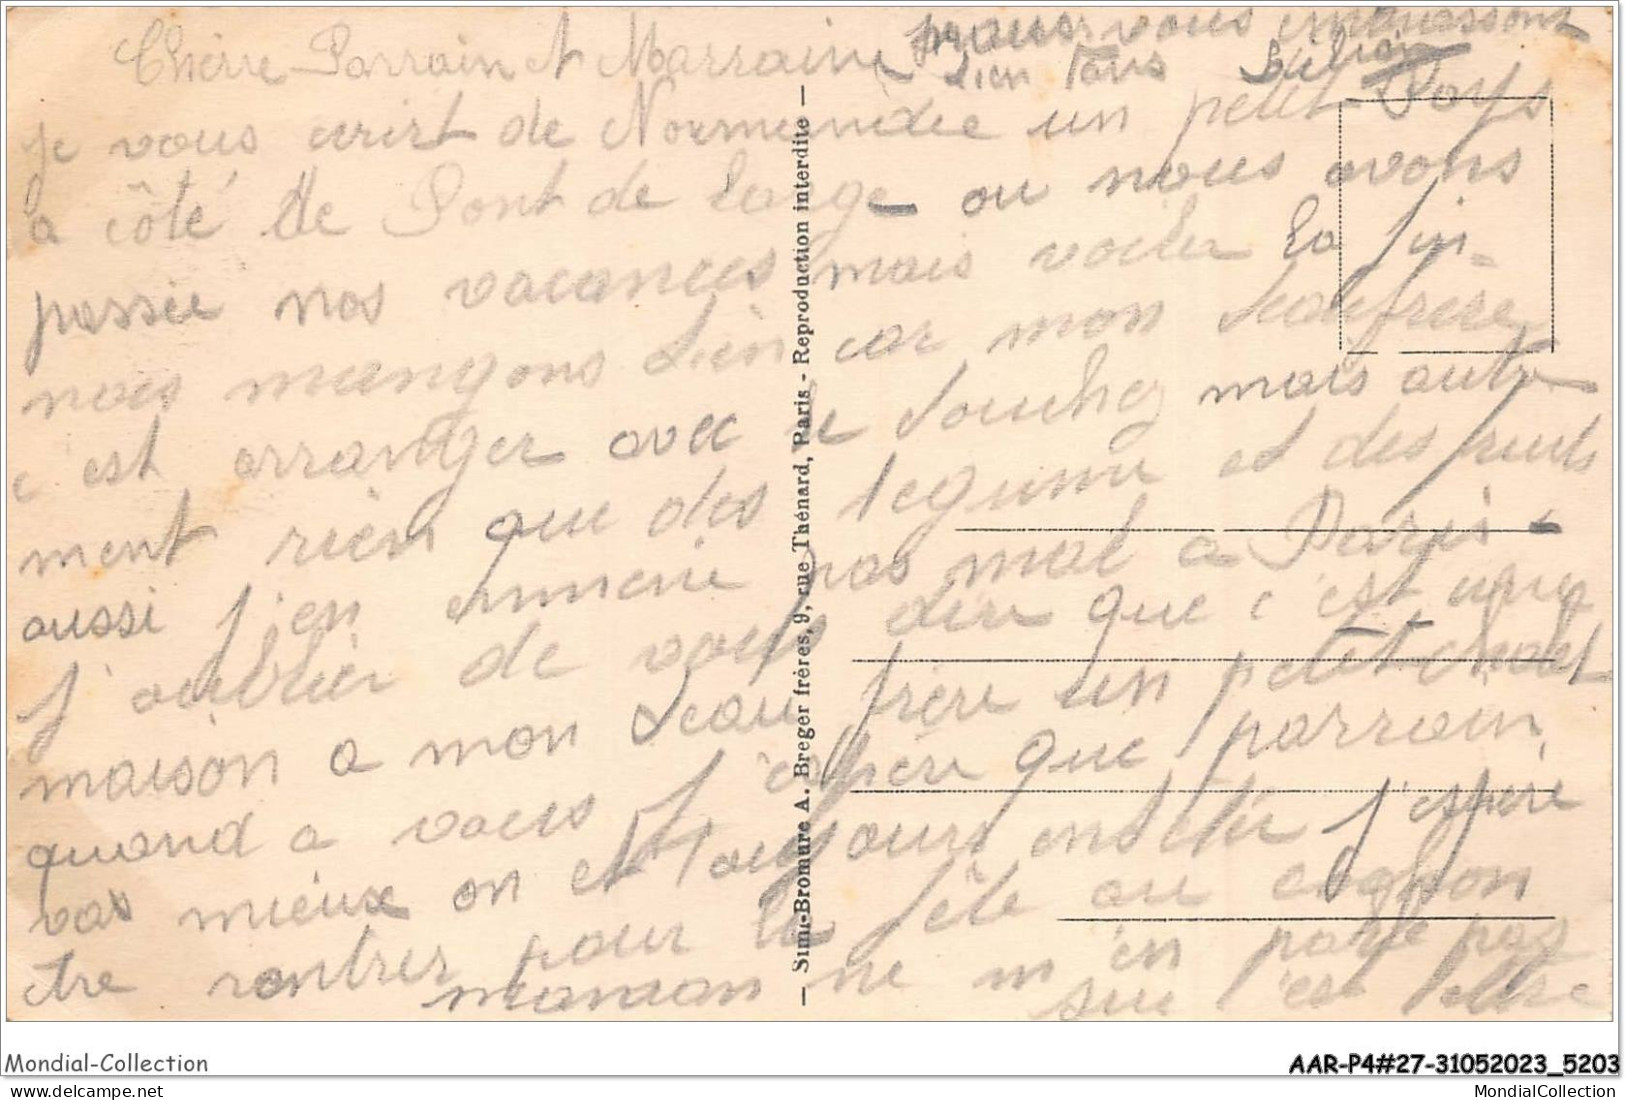 Chère Parrain et Marraine
je vous ecrist de Normendie un petit Pays
a côté de Pont de Large ou nous avons
passée nos vacances mais voiler la fin
nous mangons bien car mon beaufrère
c'est arranger avec le boucher mais autre
ment rien que des legume et des fruits
aussi j'en emmene pas mal a Paris
j'oublier de vous dire que c'est une
maison a mon beau frère un petit chalet
quand a vous j'espère que parrain
vas mieux on et toujours en J'espère
être rentrer pour la fête au
maman ne m'en parle pas
sur c'est
pour vous embrassont
bien tous
— Simi-Bromure A. Breger frères, 9, rue Thénard, Paris - Reproduction interdite —
Mondial-Collection
AAR-P4#27-31052023_5203
MondialCollection